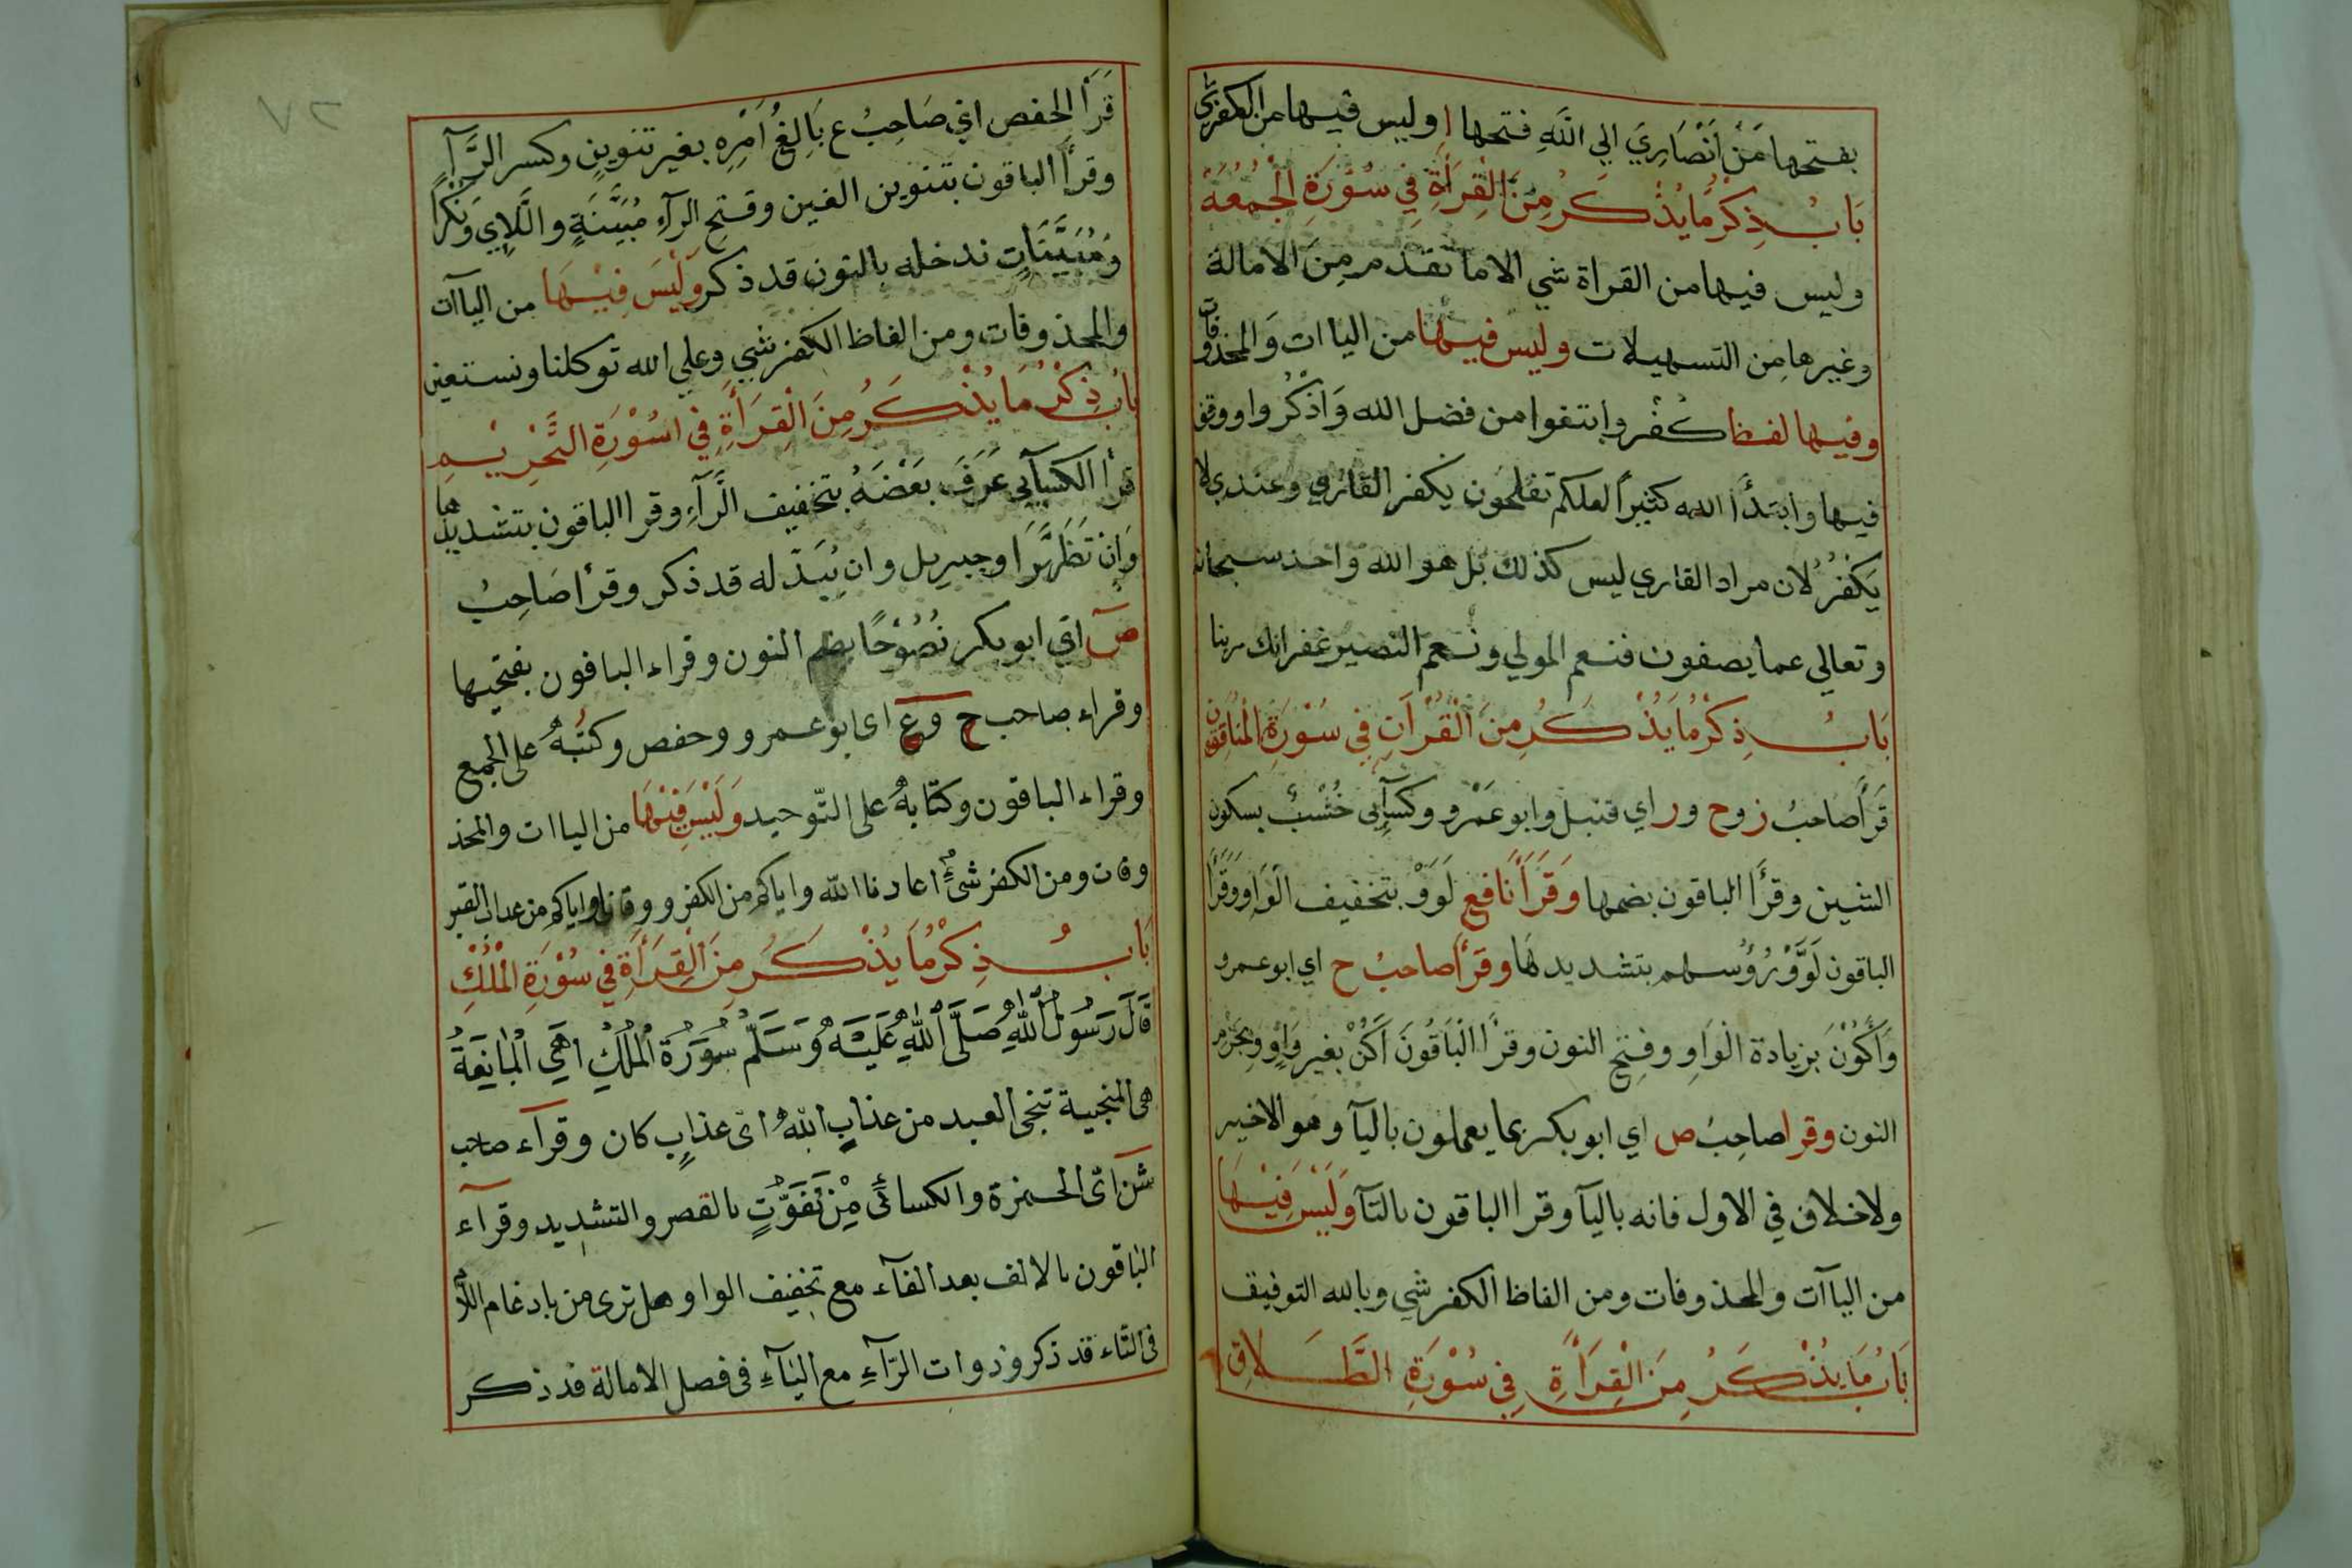 بفتحها مَنْ اَنْصَارِيَ الي اللهِ فتحها ا وليس فيها من الكفر شي
بَابُ ذِكْرُ مَا يُذْكَرُ مِنَ الْقِرَأَةِ فِي سُوْرَةِ الْجُمُعَةْ
وليس فيها من القراة شي الا ما تقدم مِنَ الامالة
وغيرها مِن التسهيلات وليس فيها من الياات وَالمحذوفات
وفيها لفظا كُفْر وابتغوا من فضل الله وَاذْكُروا ووقف
فيها وابتدأ الله كثيراً لعلكم تفلحُون يكفر القاري وعندي لا
يَكْفُرُ لان مراد القاري ليس كذلك بَل هو الله واحد سبحانه
وتعالي عما يصفون فنعم المولي ونعم النصير غفرانك ربنا
بَابُ ذِكْرُ مَا يَذْكَرُ مِنَ الْقُرْآنِ فِي سُوْرَةِ الْمُنَافِقُونَ
قَرَأَ صَاحبُ زوح وراي قنبل وابو عَمْرو وكسآئِى خُشْبٌ بسكون
الشين وقرَأ الباقون بضمها وَقَرَأَ نَافِع لَوَوْ بتخفيف الْوَاو وقَرَأ
الباقون لَوَّوْ رُؤُسهم بتشديدهَا وقرَأ صاحبُ ح اي ابو عمرو
وَاَكُوْنَ بزيادة الْوَاوِ وفتح النون وقرأ الْبَاقُونَ اَكُنْ بغير وَاوٍ وبجزم
النون وقرا صاحِبُ ص اي ابو بكر بما يعملون باليآ وهو الاخير
ولا خلاف في الاول فانه باليآ وقرا الباقون بالتآ وَلَيْسَ فِيْهَا
من الياآت والمحذوفات ومن الفاظ الكفر شي وبالله التوفيق
بَابُ مَا يُذْكَرُ مِنَ الْقِرَأَةِ فِي سُوْرَةِ الطَّلَاقِ
٧٢
قَرَأ الحفص اي صَاحِبُ ع بَالِغُ اَمْرِهِ بغير تنوينٍ وكسر الرَّآءِ
وقرأ الباقون بتنوين الغين وفتحِ الرآءِ مُبَيَّنَةٍ واللَّاِيَ وَنُكْراً
وَمُبَيَّنَاتٍ ندخله بالنون قد ذكر وَلَيْسَ فِيْهَا من الياآت
والمحذوفات ومن الفاظ الكفر شي وعلي الله توكلنا ونستعين
بَابُ ذِكْرُ مَا يُذْكَرُ مِنَ الْقِرَأَةِ فِي سُوْرَةِ التَّحْرِيْمِ
قرأ الكسآئي عَرَفَ بَعْضَهُ بتخفيف الرَّآءِ وقرا الباقون بتشديدها
وَاِنْ تَظَهَّرَا وجبرِيل وان يُبَدّله قد ذكر وقرأ صَاحِبُ
صٓ اي ابو بكر نُصُوْحًا بضم النون وقراء الباقون بفتحيها
وقراء صاحب ح وَع اى ابو عمرو وحفص وكتُبهٖ على الجمع
وقراء الباقون وكتابهٖ على التّوحيد وَلَيْسَ فِيْهَا من الياات والمحذ
وفات ومن الكفر شئٌ اعاذنا الله واياكم من الكفر ووقانا واياكم من عذاب القبر
بَابُ ذِكْرُ مَا يُذْكَرُ مِنَ الْقِرَأَةِ فِي سُوْرَةِ الْمُلْكِ
قَالَ رَسُوْلُ اللهِ صَلَّى اللهُ عَلَيْهِ وَسَلَّمْ سُوْرَةُ الْمُلْكِ هِيَ الْمَانِعَةُ
هى المنجية تنجى العبد من عذابِ اللهِ اى عذابٍ كان وقرآء صاحب
شن اى الحمزة والكسائى مِنْ تَفَوُّتٍ بالقصر والتشديد وقرآء
الباقون بالالف بعد الفآء مع تخفيف الواو وهل ترى من بادغام اللام
فى التّاء قد ذكر وذوات الرّآءِ مع اليَآءِ فى فصل الامالة قد ذكر